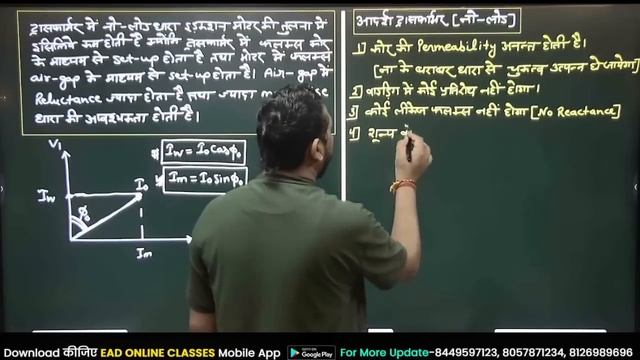 ट्रांसफार्मर में नो-लोड धारा इंडक्शन मोटर की तुलना में
इसलिये कम होती है क्योंकि ट्रांसफार्मर में फलक्स कोर
के माध्यम से set-up होता है तथा मोटर में फलक्स
air-gap के माध्यम से set-up होता है। Air-gap में
Reluctance ज्यादा होता है तथा ज्यादा
धारा की आवश्यकता होती है।
V₁
Iw
I₀
ϕ₀
Im
Iw = I₀ cosϕ₀
Im = I₀ sinϕ₀
आदर्श ट्रांसफार्मर [नो-लोड]
1) कोर की Permeability अनन्त होती है।
[ना के बराबर धारा से चुम्बकत्व उत्पन्न हो जायेगा]
2) वाइंडिंग में कोई प्रतिरोध नहीं होगा।
3) कोई लीकेज फलक्स नहीं होगा [No Reactance]
4) शून्य
Download कीजिए EAD ONLINE CLASSES Mobile App
GET IT ON
Google Play
For More Update-8449597123, 8057871234, 8126989696